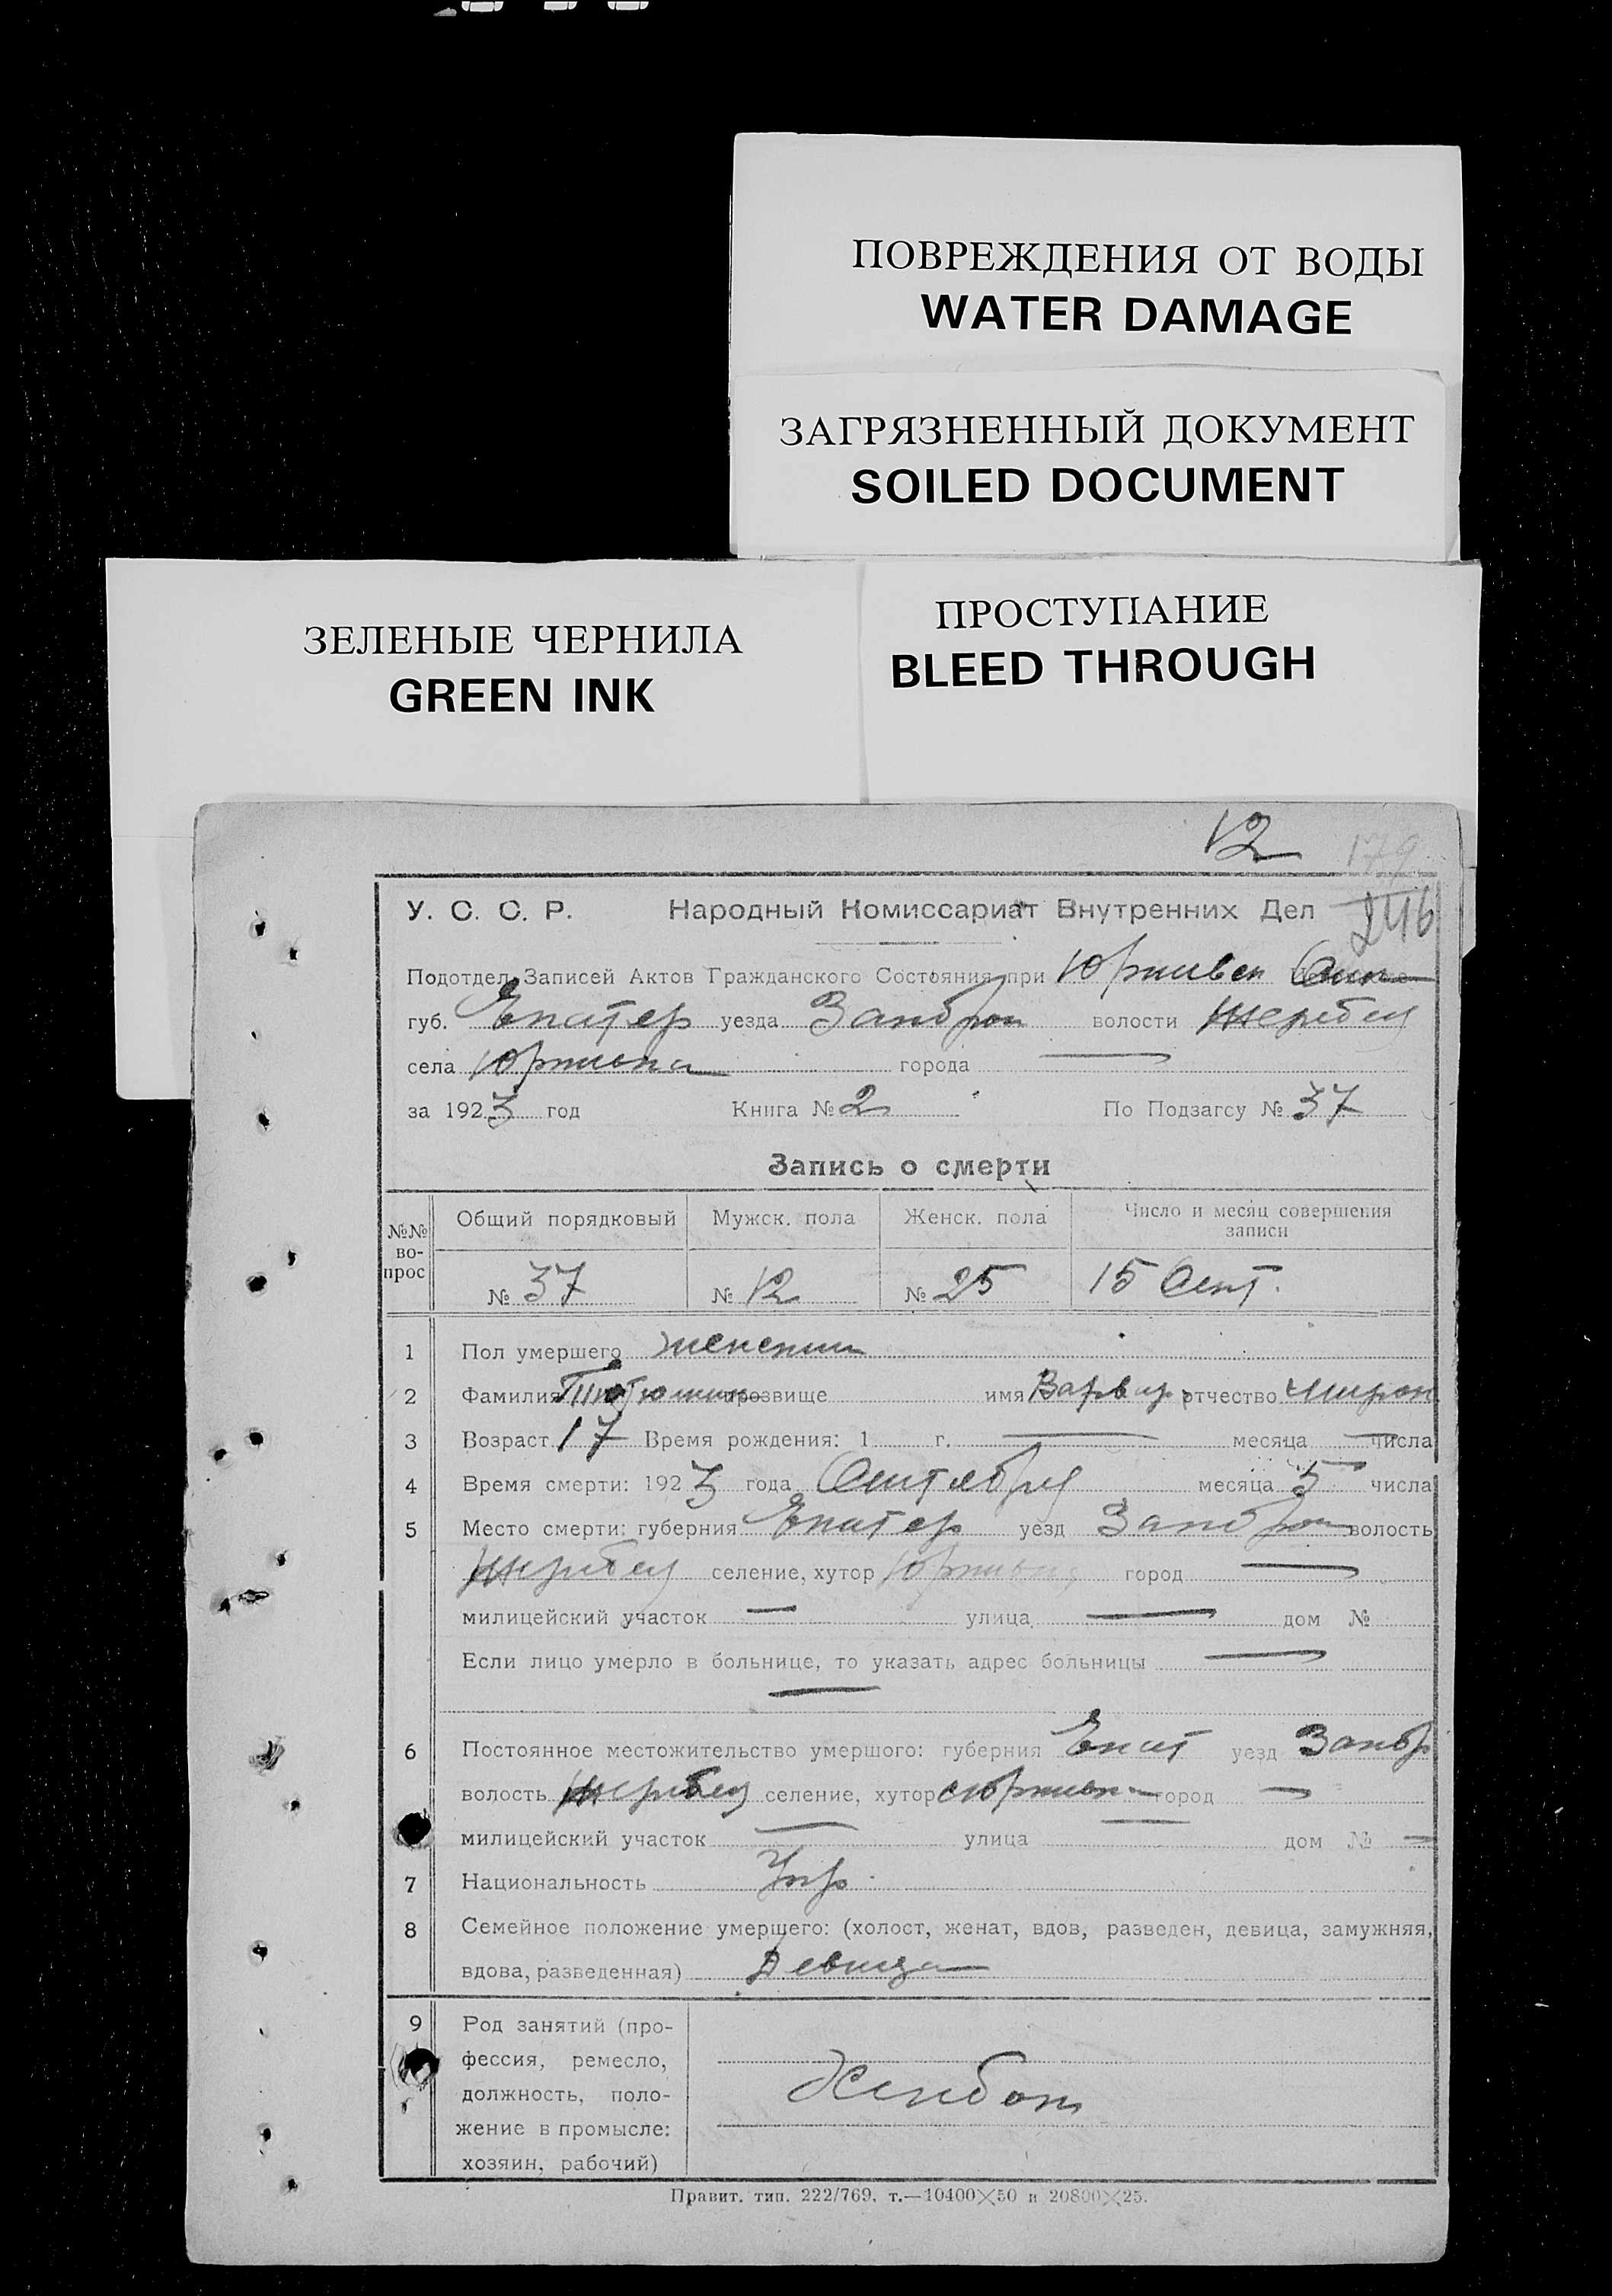 ПОВРЕЖДЕНИЯ ОТ ВОДЫ
WATER DAMAGE
ЗАГРЯЗНЕННЫЙ ДОКУМЕНТ
SOILED DOCUMENT
ЗЕЛЕНЫЕ ЧЕРНИЛА
GREEN INK
ПРОСТУПАНИЕ
BLEED THROUGH
12
179
246
У. С. С. Р. Народный Комиссариат Внутренних Дел
Подотдел Записей Актов Гражданского Состояния при
губ. Екатер уезда волости
села города
за 1923 год Книга № 2 По Подзагсу № 37
Запись о смерти
№№ во-прос Общий порядковый Мужск. пола Женск. пола Число и месяц совершения записи
№ 37 № 12 № 25 15 Сент.
1 Пол умершего женский
2 Фамилия прозвище имя Варвар отчество Мирон
3 Возраст 17 Время рождения: 1 г. месяца числа
4 Время смерти: 1923 года Сентября месяца 5 числа
5 Место смерти: губерния Екатер уезд волость
селение, хутор город
милицейский участок улица дом №
Если лицо умерло в больнице, то указать адрес больницы
6 Постоянное местожительство умершого: губерния Екат уезд
волость селение, хутор город
милицейский участок улица дом №
7 Национальность Укр.
8 Семейное положение умершего: (холост, женат, вдов, разведен, девица, замужняя,
вдова, разведенная) Девица
9 Род занятий (про-
фессия, ремесло,
должность, поло-
жение в промысле:
хозяин, рабочий)
Хлебоп
Правит. тип. 222/769, т.—10400×50 и 20800×25.